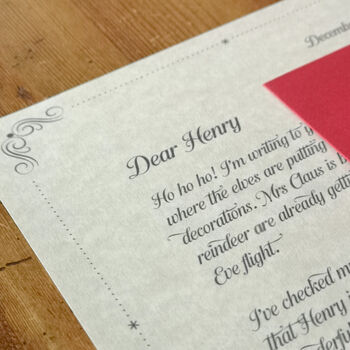 December
Dear Henry
Ho ho ho! I'm writing to y
where the elves are putting
decorations. Mrs Claus is
reindeer are already getti
Eve flight.
I've checked m
that Henry
derful